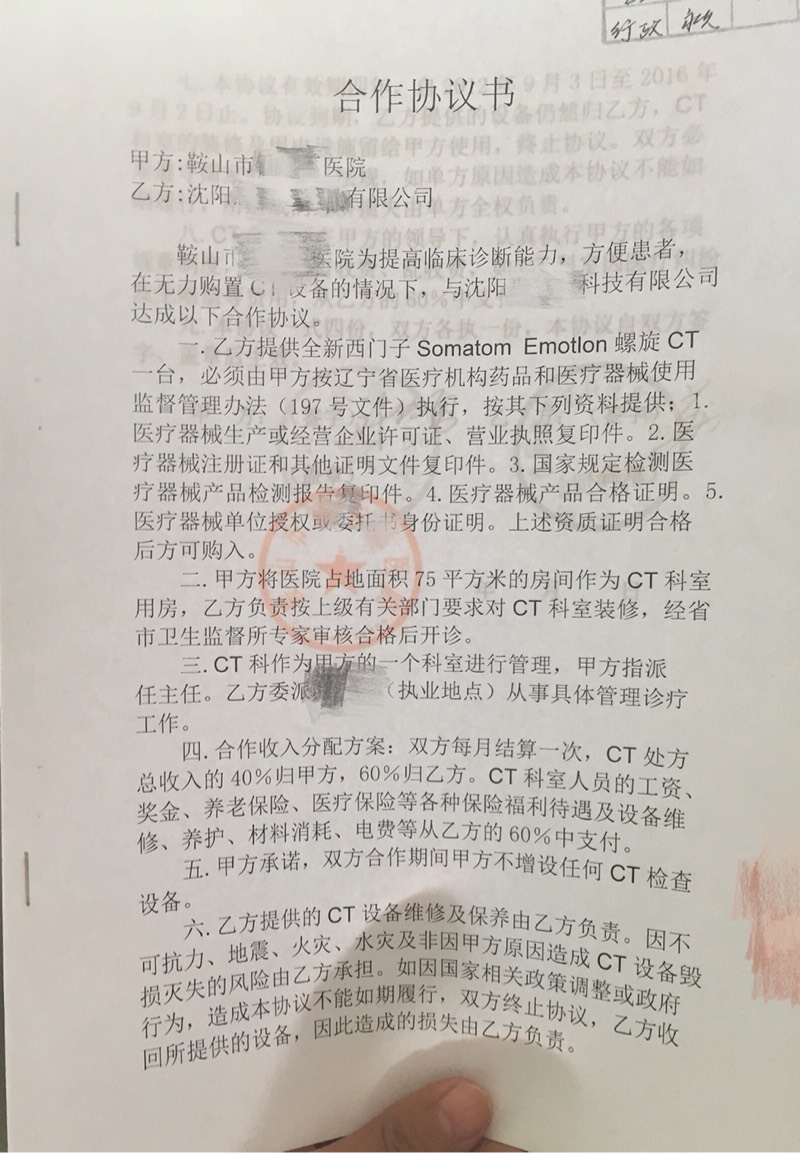 行政
合作协议书
甲方:鞍山市 医院
乙方:沈阳 有限公司
鞍山市 医院为提高临床诊断能力，方便患者，
在无力购置CT设备的情况下，与沈阳 科技有限公司
达成以下合作协议。
一.乙方提供全新西门子 Somatom Emotlon 螺旋 CT
一台，必须由甲方按辽宁省医疗机构药品和医疗器械使用
监督管理办法（197 号文件）执行，按其下列资料提供；1.
医疗器械生产或经营企业许可证、营业执照复印件。2.医
疗器械注册证和其他证明文件复印件。3.国家规定检测医
疗器械产品检测报告复印件。4.医疗器械产品合格证明。5.
医疗器械单位授权或委托书身份证明。上述资质证明合格
后方可购入。
二.甲方将医院占地面积 75 平方米的房间作为 CT 科室
用房，乙方负责按上级有关部门要求对 CT 科室装修，经省
市卫生监督所专家审核合格后开诊。
三.CT 科作为甲方的一个科室进行管理，甲方指派
任主任。乙方委派 （执业地点）从事具体管理诊疗
工作。
四.合作收入分配方案：双方每月结算一次，CT 处方
总收入的 40%归甲方，60%归乙方。CT 科室人员的工资、
奖金、养老保险、医疗保险等各种保险福利待遇及设备维
修、养护、材料消耗、电费等从乙方的 60%中支付。
五.甲方承诺，双方合作期间甲方不增设任何 CT 检查
设备。
六.乙方提供的 CT 设备维修及保养由乙方负责。因不
可抗力、地震、火灾、水灾及非因甲方原因造成 CT 设备毁
损灭失的风险由乙方承担。如因国家相关政策调整或政府
行为，造成本协议不能如期履行，双方终止协议，乙方收
回所提供的设备，因此造成的损失由乙方负责。